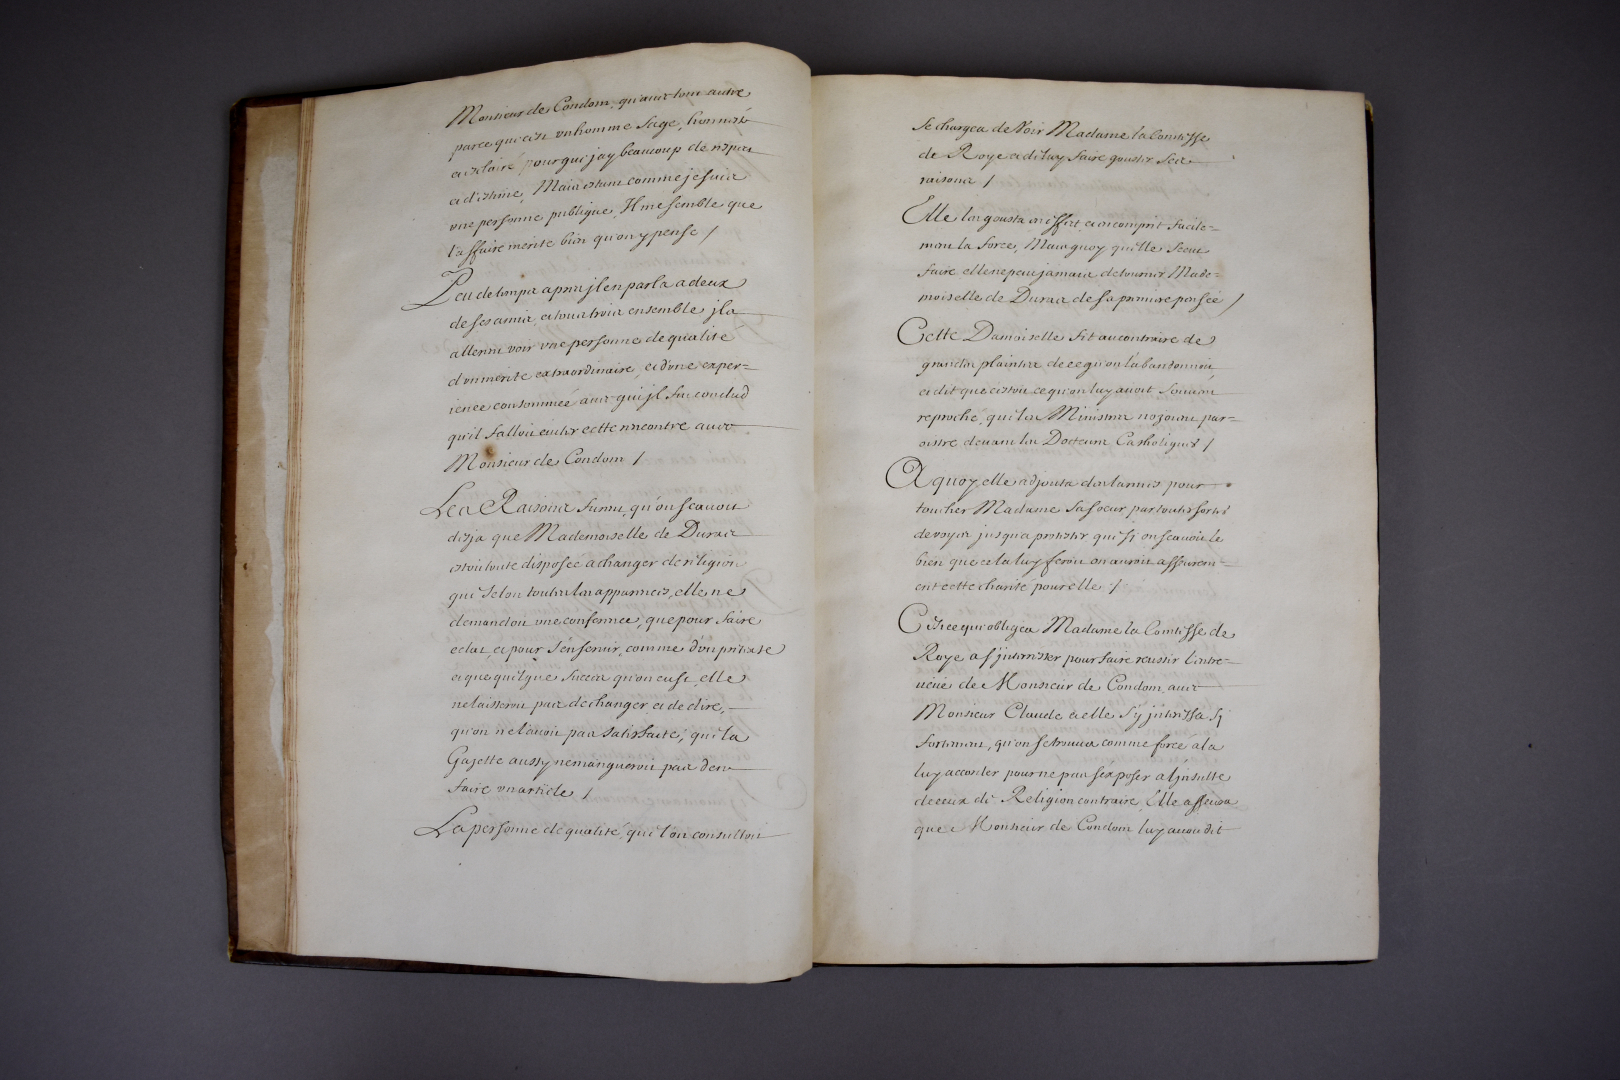 Monsieur de Condom, qu'avec tout autre
parce que c'est un homme sage, honneste
et esclairé pour qui j'ay beaucoup de respect
et d'estime, Mais estant comme je suis
une personne publique, Il me semble que
l'affaire merite bien qu'on y pense /
Peu de temps apres jl en parla a deux
de ses amis, et tous trois ensemble jls
allerent voir une personne de qualité
d'un merite extraordinaire, et d'une exper=
ience consommée avec qui jl fut conclud
qu'il falloit eviter cette rencontre avec
Monsieur de Condom /
Les Raisons furent, qu'on sçavoit
desja que Mademoiselle de Duras
estoit toute disposée a changer de religion
que selon toutes les apparences, elle ne
demandoit une conference, que pour faire
eclat, et pour s'en servir, comme d'un pretexte
et que quelque succez qu'on eust, elle
ne laisseroit pas de changer et de dire,
qu'on ne l'avoit pas satisfaite, que la
Gazette aussy ne manqueroit pas d'en
faire un article /
La personne de qualité, que l'on consultoit
se chargea de Voir Madame la Comtesse
de Roye et de luy faire gouster ses
raisons /
Elle les gousta en effect, et en comprit facile=
ment la force, Mais quoy qu'elle sceut
faire elle ne peut jamais detourner Made=
moiselle de Duras de sa premiere pensée /
Cette Damoiselle fit au contraire de
grandes plaintes de ce qu'on l'abandonnoit,
et dit que c'estoit ce qu'on luy avoit souvent
reproché, que les Ministres n'ozoient par=
oistre devant les Docteurs Catholiques /
A quoy elle adjousta des larmes pour
toucher Madame sa soeur par toutes sortes
de voyes jusqu'a protester que si on sçavoit le
bien que cela luy feroit on auroit asseurem=
ent cette charité pour elle /
C'est ce qui obligea Madame la Comtesse de
Roye a s'jnteresser pour faire reussir l'entre=
veüe de Monsieur de Condom avec
Monsieur Claude et elle s'y jnteressa sy
fortement, qu'on se trouva comme forcé a la
luy accorder pour ne pas s'exposer a l'jnsulte
de ceux de Religion contraire, Elle asseura
que Monsieur de Condom luy avoit dit